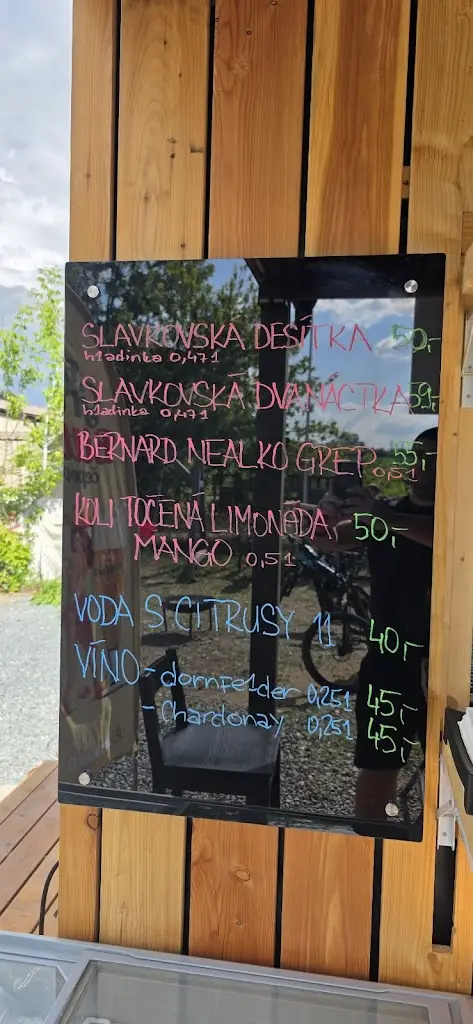 SLAVKOVSKÁ DESÍTKA 50,-
hladinka 0,47l
SLAVKOVSKÁ DVANÁCTKA 59,-
hladinka 0,47l
BERNARD NEALKO GREP 0,5l 55,-
KOLI TOČENÁ LIMONÁDA, 50,-
MANGO 0,5l
VODA S CITRUSY 1l 40,-
VÍNO - dornfelder 0,25l 45,-
- Chardonay 0,25l 45,-